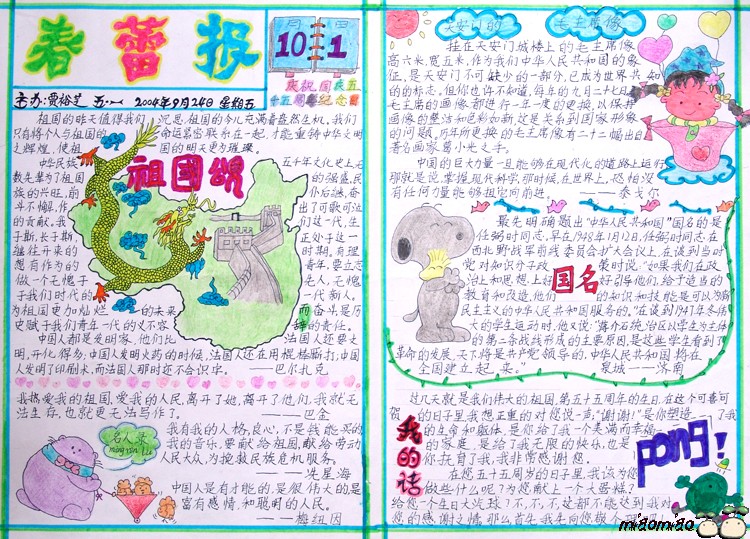 春蕾报
10月1日
庆祝国庆五
十五周年纪念日
主办:贾裕芝 五·一 2004年9月24日 星期五
祖国的昨天值得我们沉思,祖国的今儿充满着盎然生机,我们
只有将个人与祖国的命运紧密联系在一起,才能重铸中华文明
之辉煌,使祖国的明天更为璀璨。
祖國頌
中华民族五十年文化史上无
数先辈为了祖国的强盛,民
族的兴旺,前仆后继,奋
斗不懈,作出了可歌可泣
的贡献。我们这一代,生
于斯,长于斯正处于这一
继往开来的时期。有理
想有作为的青年,要立志
做一个无愧于人,无愧
于我们时代的一代新人。
为祖国更加灿烂的未来而奋斗是历
史赋于我们青年一代的义不容辞的责任。
中国人都是发明家,他们比法国人还要文
明,开化得多,中国人发明火药的时候,法国人还在用棍棒厮打;中国
人发明了印刷术,而法国人那时还不会识字。——巴尔扎克
我热爱我的祖国,爱我的人民,离开了她,离开了他们,我就无
法生存,也就更无法写作了。——巴金
名人录
mingren lu
我有我的人格,良心,不是钱能买的,
我的音乐,要献给祖国,献给劳动
人民大众,为挽救民族危机服务。
——冼星海
中国人是有才能的,是很伟大的是
富有感情和聪明的人民。
——梅纽因
天安门的毛主席像
挂在天安门城楼上的毛主席像
高六米,宽五米,作为我们中华人民共和国的象
征,是天安门不可缺少的一部分,已成为世界共知
的的标志。但你也许不知道,每年的九月二十七日,
毛主席的画像都进行一年一度的更换,以保持
画像的整洁和色彩如新,这是关系到国家形象
的问题,历年所更换的毛主席像有二十二幅出自
著名画家葛小光之手。
中国的巨大力量一旦能够在现代化的道路上运行
那就是说,掌握,现代科学,那时候,在世界上,恐怕没
有任何力量能够阻它向前进。——泰戈尔
国名
最先明确题出“中华人民共和国”国名的是
任弼时同志。早在1948年1月12日,任弼时同志在
西北野战军前线委员会扩大会议上,在谈到当时
党对知识分子政策时说:“如果我们在政
治上和思想上好好引导他们,给予适当的
教育和改造,他们的知识和技能是可以为新
民主主义的中华人民共和国服务的。”在谈到1947年冬伟
大的学生运动时,他又说:“蒋介石统治区以学生为主体
的第二条战线形成的主要原因,是这些学生看到了
革命的发展,天下将是共产党领导的,中华人民共和国将在
全国建立起来。”泉城——济南
我的话
过几天就是我们伟大的祖国,第五十五周年的生日,在这个可喜可
贺的日子里我想正重的对您说一声,“谢谢!”是你塑造了我
的生命和躯体,是你给了我一个美满而幸福
的家庭,是给了我无限的快乐,也是
你抚育了我,我非常感谢您。
在您五十五周岁的日子里,我该为您
做些什么呢?为您献上一个大蛋糕?
给您一个生日大汽球?不,不,不,这都不能达到我对
您的感谢之情,那么,首先,我先向您敬
pong!
miaomiao